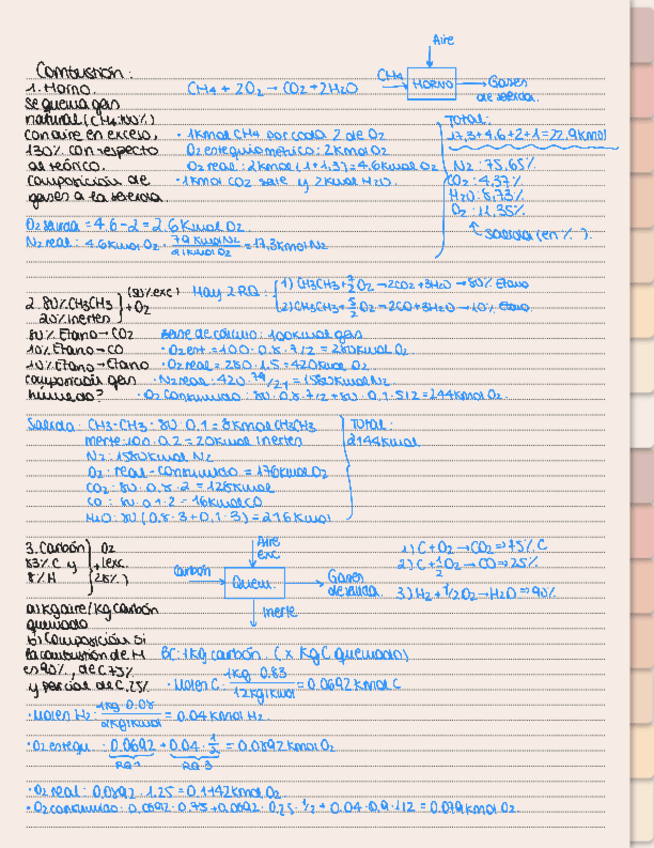 Combustión:
Aire
1. Horno.
CH4 + 2O2 → CO2 + 2H2O
CH4
HORNO
Gases de salida.
Se quema gas
natural (CH4 100%)
con aire en exceso,
130% con respecto
al teórico.
composición de
gases a la salida.
· 1Kmol CH4 por cada 2 de O2
O2 estequiométrico: 2Kmol
O2 real: 2Kmol (1+1,3) = 4.6Kmol O2
· 1Kmol CO2 sale y 2Kmol H2O.
TOTAL:
17,3+4,6+2+1=22,9Kmol
N2: 75,65%
CO2: 4,37%
H2O: 8,73%
O2: 11,35%
salida (en %).
O2 salida = 4.6-2 = 2.6 Kmol O2
N2 real: 4.6Kmol O2 · 79 Kmol N2 / 21 Kmol O2 = 17,3Kmol N2
2. 80% CH3CH3
20% inertes
+ O2
(50% exc)
Hay 2 RQ:
1) CH3CH3 + 7/2 O2 → 2CO2 + 3H2O → 80% Etano
2) CH3CH3 + 5/2 O2 → 2CO + 3H2O → 10% Etano
80% Etano → CO2
10% Etano → CO
10% Etano → Etano
composición gas
húmedo?
Base de cálculo: 100Kmol gas
· O2 est. = 100 · 0.8 · 7/2 = 280Kmol O2
· O2 real = 280 · 1.5 = 420Kmol O2
· N2 real: 420 · 79/21 = 1580Kmol N2
· O2 consumido: 80 · 0.8 · 7/2 + 80 · 0.1 · 5/2 = 244Kmol O2.
Salida: CH3-CH3: 80 · 0.1 = 8Kmol CH3CH3
inerte: 100 · 0.2 = 20Kmol inertes
N2: 1580Kmol N2
O2: real - consumido = 176Kmol O2
CO2: 80 · 0,8 · 2 = 128Kmol
CO: 80 · 0.1 · 2 = 16Kmol CO
H2O: 80 (0.8 · 3 + 0.1 · 3) = 216Kmol
TOTAL:
2144Kmol
3. Carbón
83% C y
8% H
O2
(exc.
25%)
Aire exc
carbón
Quem.
Gases de salida.
Inerte
1) C + O2 → CO2 ⇒ 75% C
2) C + 1/2 O2 → CO ⇒ 25%
3) H2 + 1/2 O2 → H2O ⇒ 90%
a) Kg aire / Kg carbón
quemado
b) Composición si
la combustión de H
es 90%, de C 75%
y parcial de C, 25%
BC: 1Kg carbón. (x Kg C quemado)
· Moles C: 1Kg · 0.83 / 12 Kg/Kmol = 0.0692 Kmol C
· Moles H2: 1Kg · 0.08 / 2Kg/Kmol = 0.04 Kmol H2.
· O2 estequ.: 0.0692 + 0.04 · 1/2 = 0.0892 Kmol O2
RQ 1
RQ 3
· O2 real: 0.0892 · 1.25 = 0.1142Kmol O2
· O2 consumido: 0.0692 · 0.75 + 0.0692 · 0.25 · 1/2 + 0.04 · 0.9 · 1/2 = 0.079 Kmol O2.